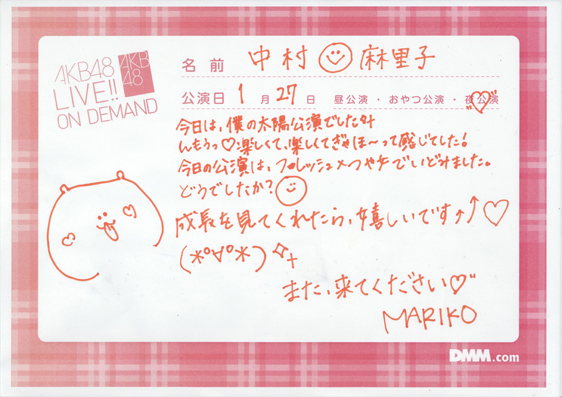 AKB48
LIVE!!
ON DEMAND
AKB
48
名前 中村 麻里子
公演日 1月27日 昼公演・おやつ公演・夜公演
今日は、僕の太陽公演でした
んもうっ♡楽しくて、楽しくてぎゃほ〜って感じでした!
今日の公演は、フレッシュ×つやチでいどみました。
どうでしたか?
成長を見てくれたら、嬉しいです↑↑♡
(*°∀°*)
また、来てください♡
MARIKO
DMM.com